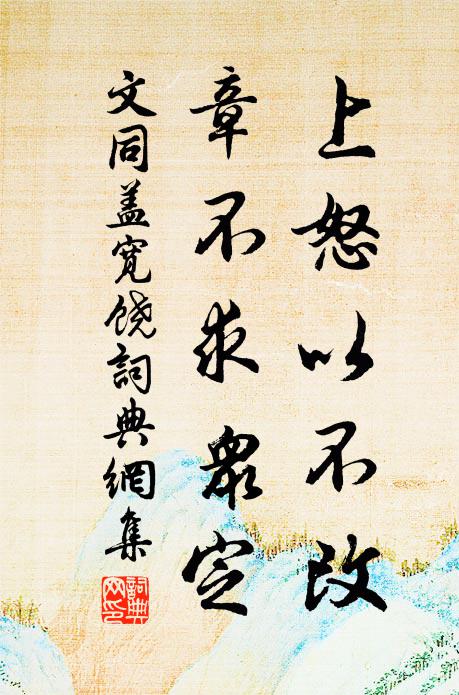 上怒以不改
章不求众定
文同盖寬饶詞典網集
詞典
网印